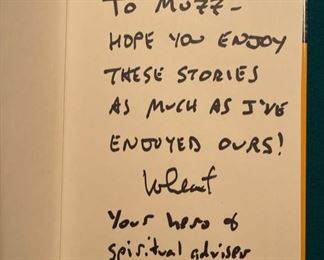 To MUZZ-
HOPE YOU ENJOY
THESE STORIES
AS MUCH AS I'VE
ENJOYED OURS!
Your hero &
spiritual adviser